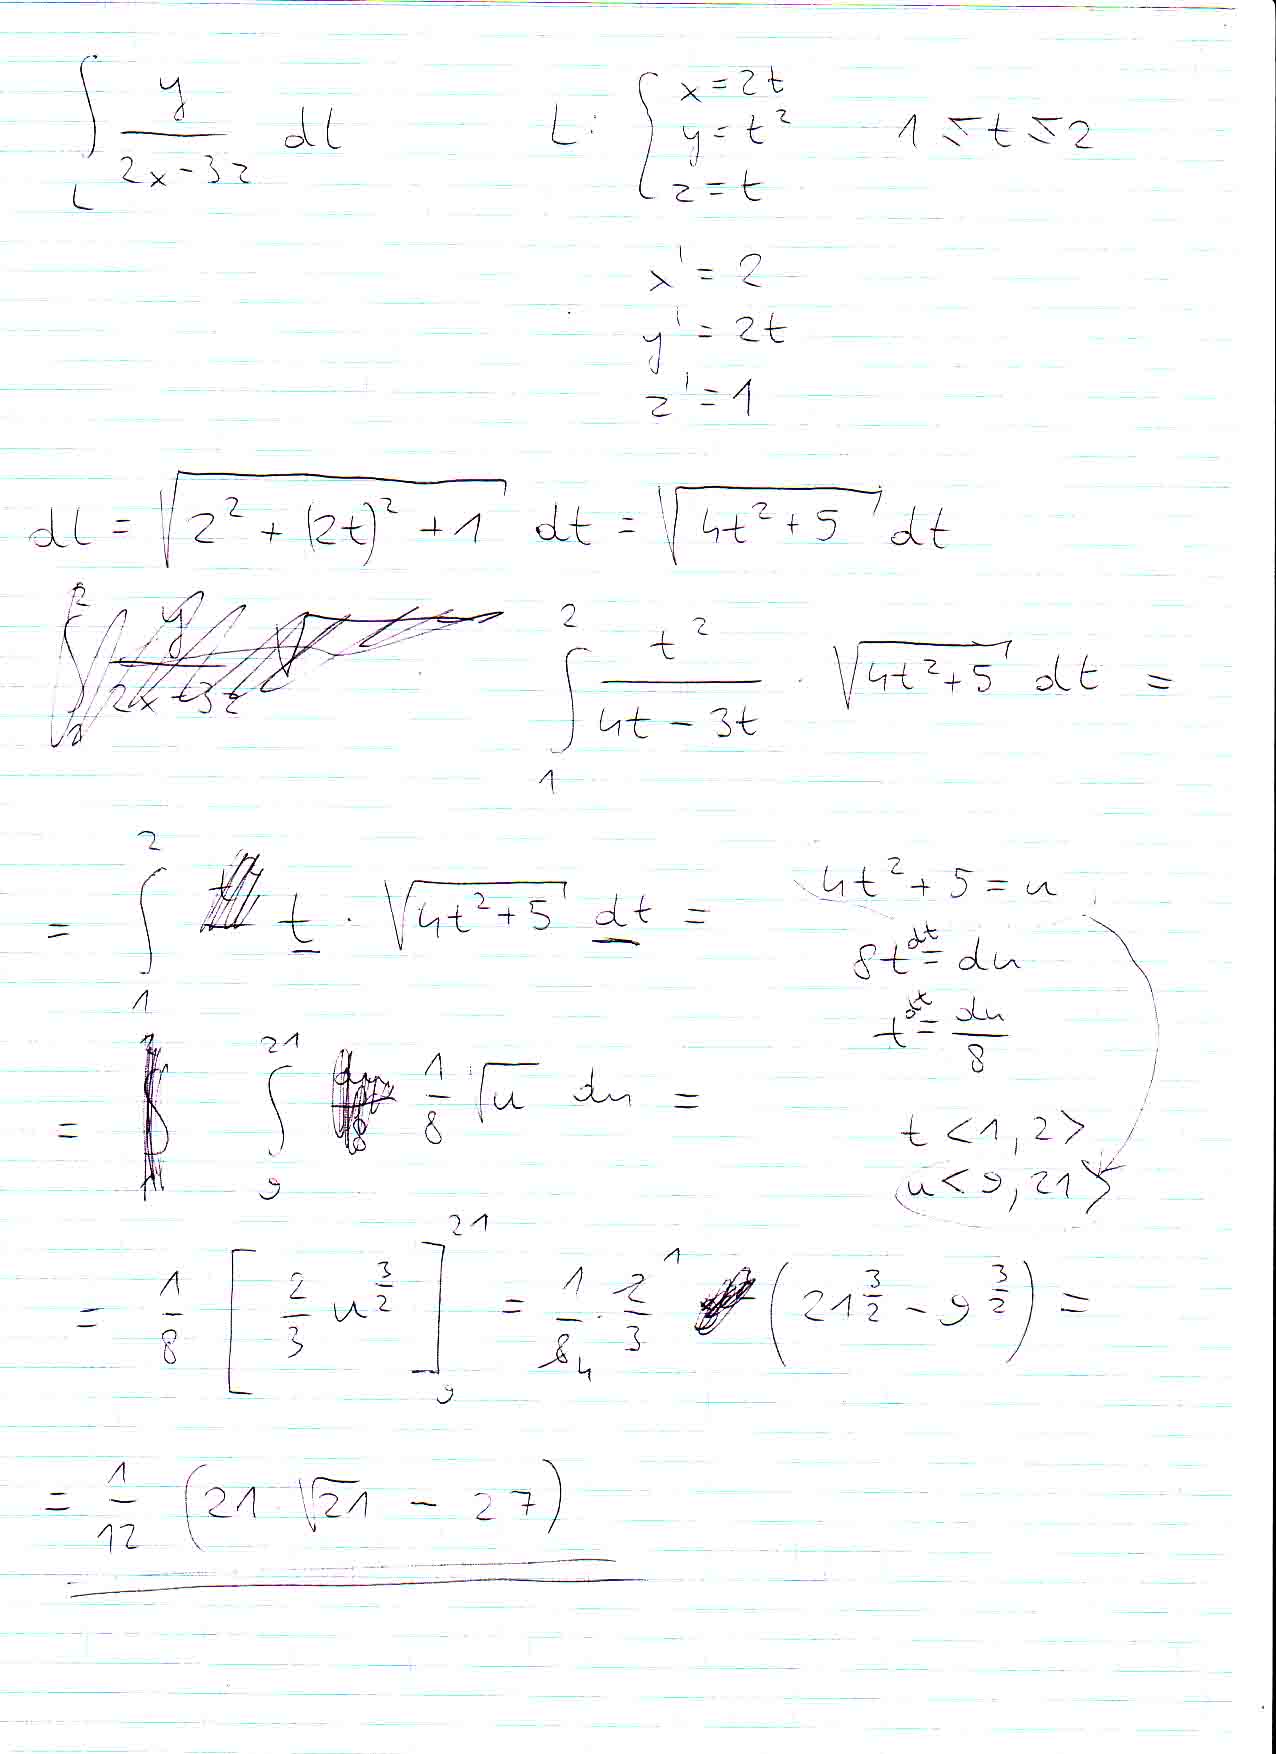 ∫_L y/(2x-3z) dl L: { x=2t
y=t² 1≤t≤2
z=t
x'=2
y'=2t
z'=1
dl = √(2²+(2t)²+1) dt = √(4t²+5) dt
∫_1^2 t²/(4t-3t) · √(4t²+5) dt =
= ∫_1^2 t · √(4t²+5) dt = 4t²+5=u
8t dt = du
t dt = du/8
= ∫_9^21 1/8 √u du =
t <1,2>
u <9,21>
= 1/8 [2/3 u^(3/2)]_9^21 = 1/8 4 · 2/3 1 (21^(3/2) - 9^(3/2)) =
= 1/12 (21 √21 - 27)